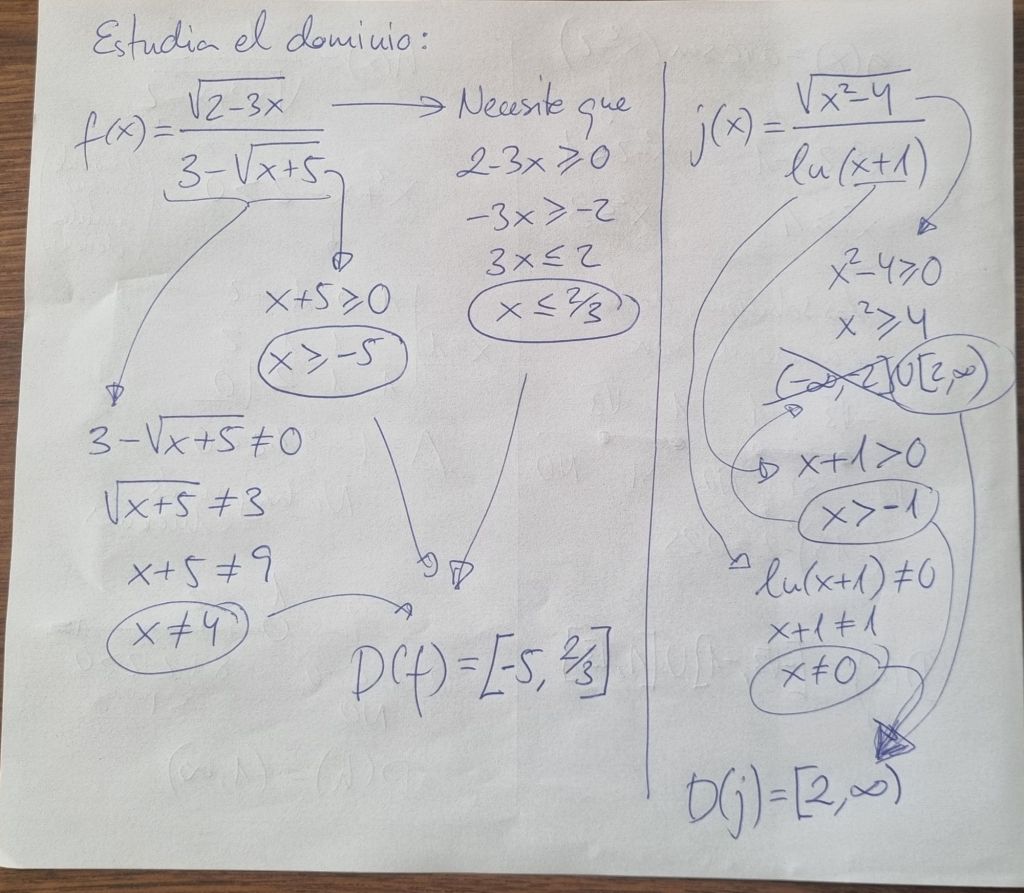 Estudia el dominio:
f(x) = √(2-3x) / (3-√(x+5))
Necesito que
2-3x ≥ 0
-3x ≥ -2
3x ≤ 2
x ≤ 2/3
x+5 ≥ 0
x ≥ -5
3-√(x+5) ≠ 0
√(x+5) ≠ 3
x+5 ≠ 9
x ≠ 4
D(f) = [-5, 2/3]
j(x) = √(x²-4) / ln(x+1)
x²-4 ≥ 0
x² ≥ 4
(-∞, -2] ∪ [2, ∞)
x+1 > 0
x > -1
ln(x+1) ≠ 0
x+1 ≠ 1
x ≠ 0
D(j) = [2, ∞)